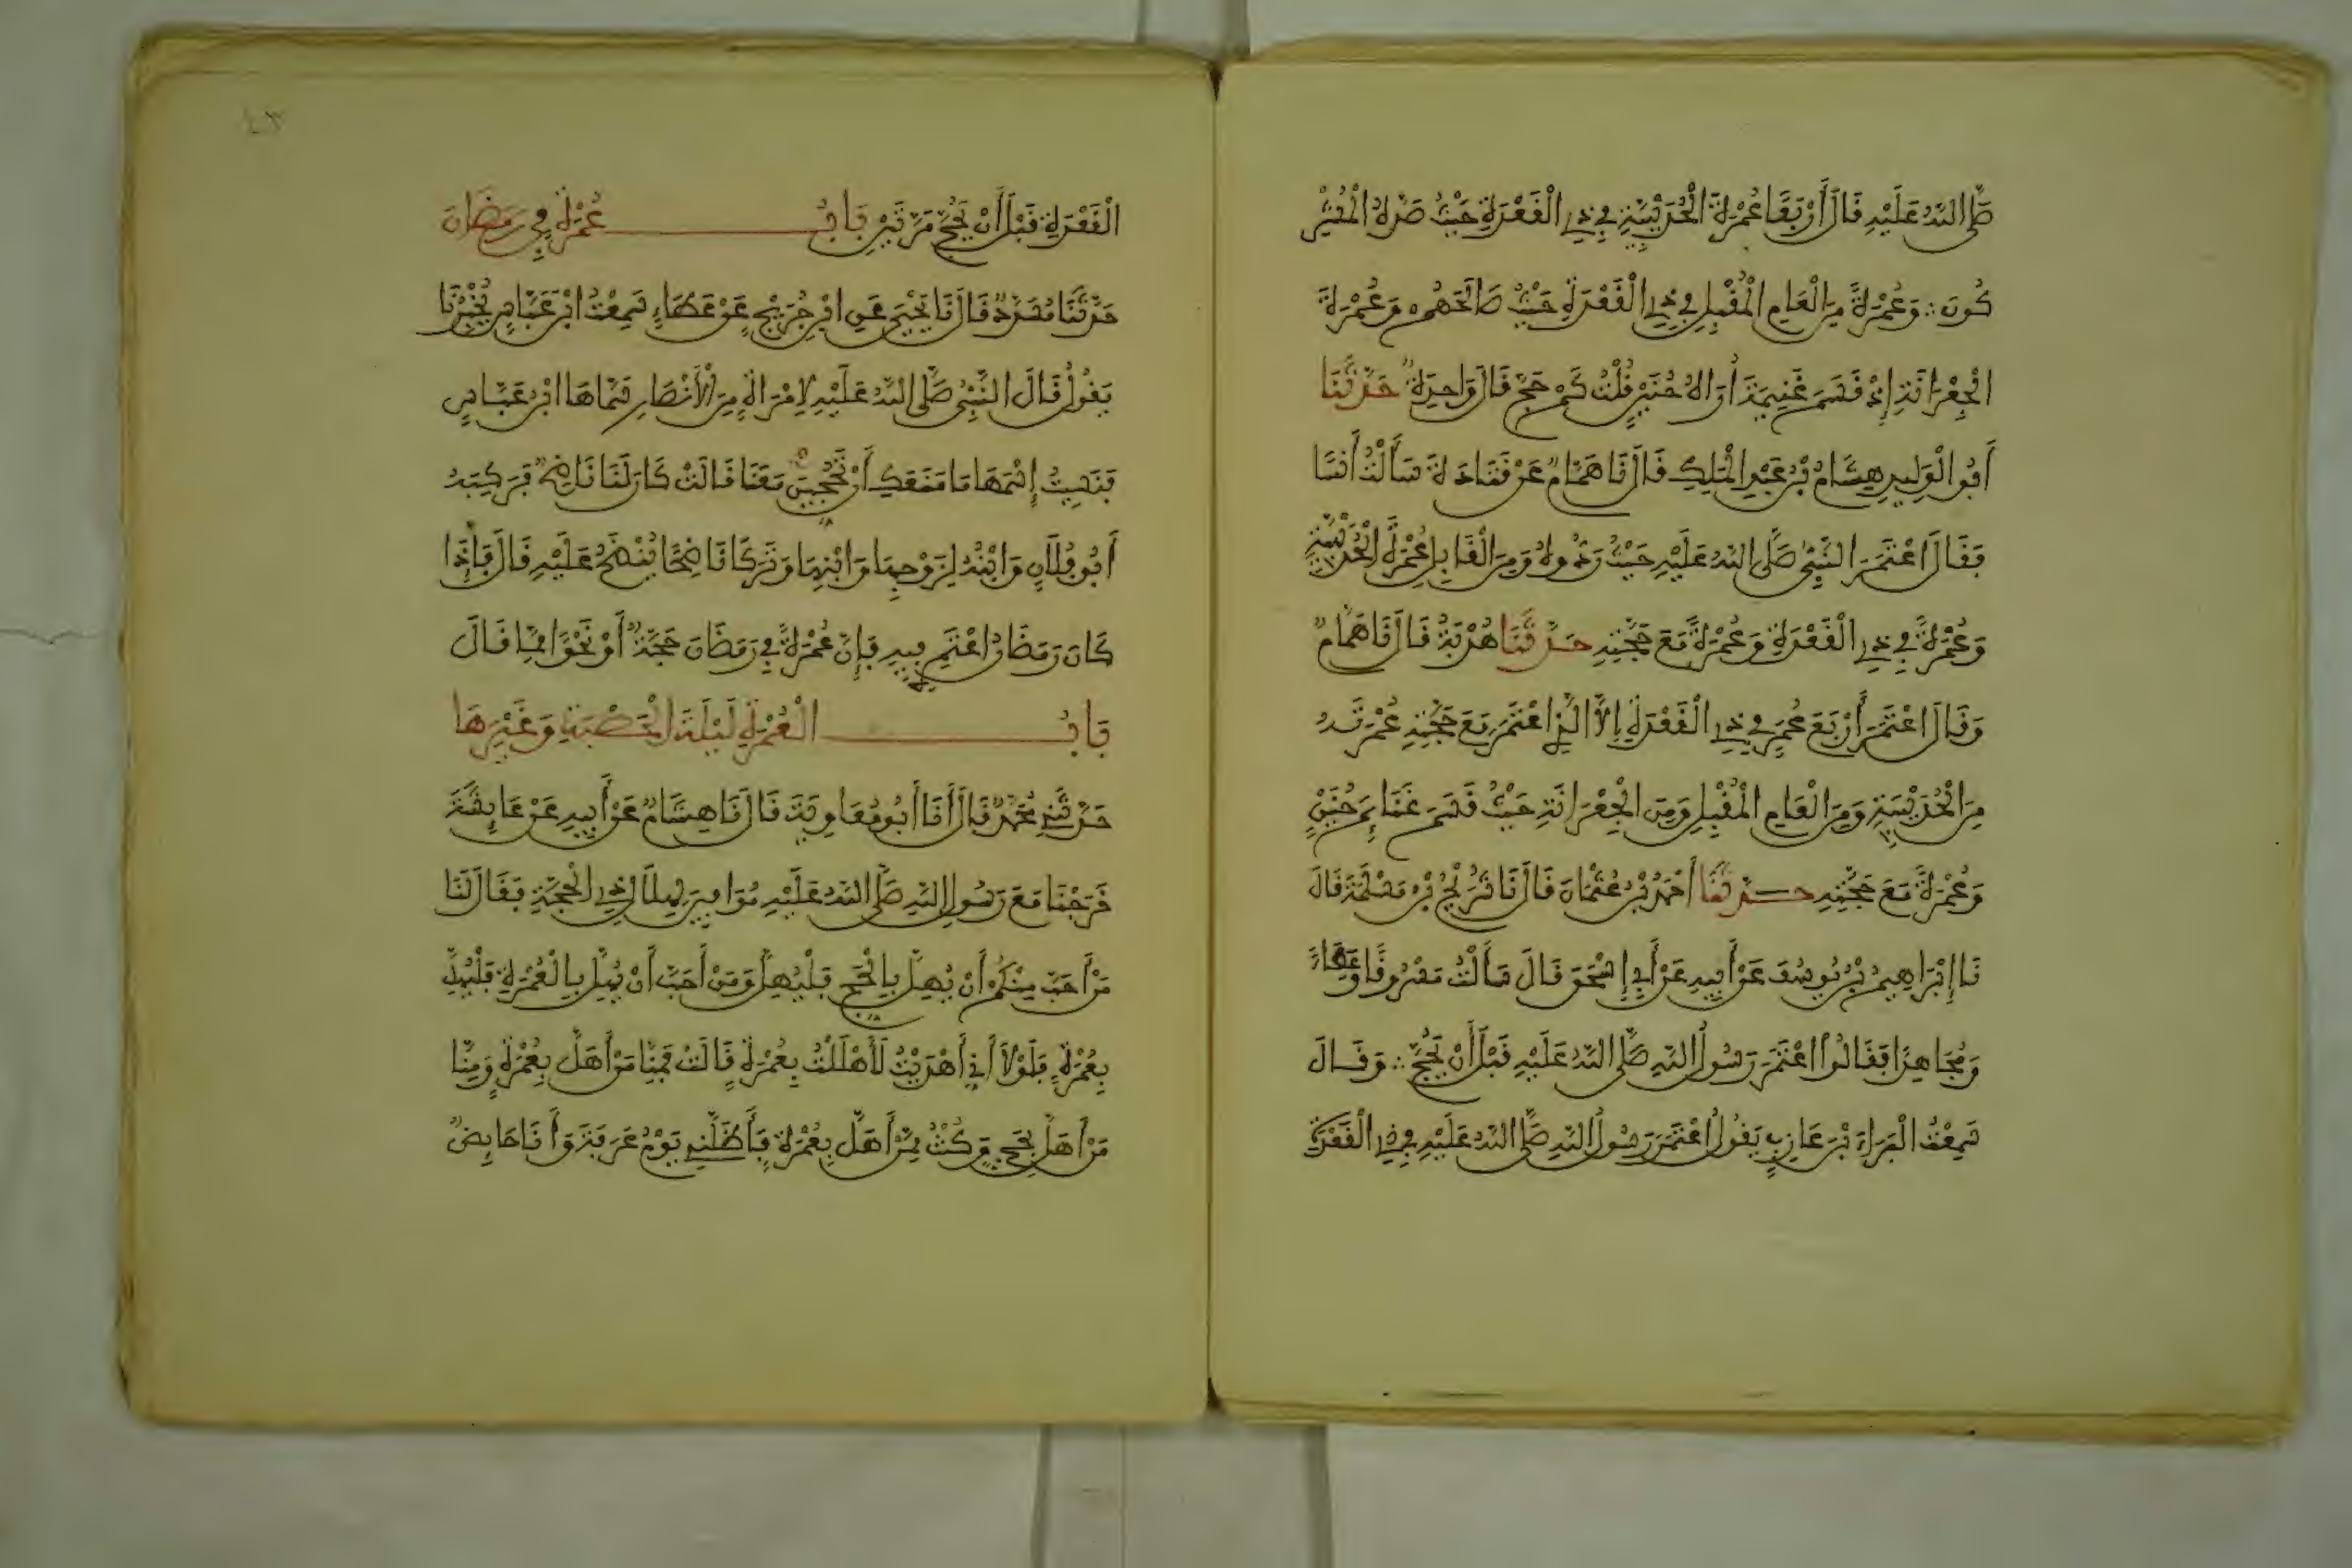 صَلَّى اللَّهُ عَلَيْهِ قَالَ أَرْبَعًا عُمْرَةَ الْحُدَيْبِيَةِ فِي ذِي الْقَعْدَةِ حَيْثُ صَدَّهُ الْمُشْرِ
كُونَ وَعُمْرَةً مِنَ الْعَامِ الْمُقْبِلِ فِي ذِي الْقَعْدَةِ حَيْثُ صَالَحَهُمْ وَعُمْرَةَ
الْجِعْرَانَةِ إِذْ قَسَمَ غَنِيمَةَ أُرَاهُ حُنَيْنٍ قُلْتُ كَمْ حَجَّ قَالَ وَاحِدَةً حَدَّثَنَا
أَبُو الْوَلِيدِ هِشَامُ بْنُ عَبْدِ الْمَلِكِ قَالَ نَا هَمَّامٌ عَنْ قَتَادَةَ سَأَلْتُ أَنَسًا
فَقَالَ اعْتَمَرَ النَّبِيُّ صَلَّى اللَّهُ عَلَيْهِ حَيْثُ رَدُّوهُ وَمِنَ الْقَابِلِ عُمْرَةَ الْحُدَيْبِيَةِ
وَعُمْرَةً فِي ذِي الْقَعْدَةِ وَعُمْرَةً مَعَ حَجَّتِهِ حَدَّثَنَا هُدْبَةُ قَالَ نَا هَمَّامٌ
وَقَالَ اعْتَمَرَ أَرْبَعَ عُمَرٍ فِي ذِي الْقَعْدَةِ إِلَّا الَّذِي اعْتَمَرَ مَعَ حَجَّتِهِ عُمْرَتَهُ
مِنَ الْحُدَيْبِيَةِ وَمِنَ الْعَامِ الْمُقْبِلِ وَمِنَ الْجِعْرَانَةِ حَيْثُ قَسَمَ غَنَائِمَ حُنَيْنٍ
وَعُمْرَةً مَعَ حَجَّتِهِ حَدَّثَنَا أَحْمَدُ بْنُ عُثْمَانَ قَالَ نَا شُرَيْحُ بْنُ مَسْلَمَةَ قَالَ
نَا إِبْرَاهِيمُ بْنُ يُوسُفَ عَنْ أَبِيهِ عَنْ أَبِي إِسْحَقَ قَالَ سَأَلْتُ مَسْرُوقًا وَعَطَاءً
وَمُجَاهِدًا فَقَالُوا اعْتَمَرَ رَسُولُ اللَّهِ صَلَّى اللَّهُ عَلَيْهِ قَبْلَ أَنْ يَحُجَّ وَقَالَ
سَمِعْتُ الْبَرَاءَ بْنَ عَازِبٍ يَقُولُ اعْتَمَرَ رَسُولُ اللَّهِ صَلَّى اللَّهُ عَلَيْهِ فِي ذِي الْقَعْدَةِ
الْقَعْدَةِ قَبْلَ أَنْ يَحُجَّ مَرَّتَيْنِ بَابُ عُمْرَةٍ فِي رَمَضَانَ
حَدَّثَنَا مُسَدَّدٌ قَالَ نَا يَحْيَى عَنِ ابْنِ جُرَيْجٍ عَنْ عَطَاءٍ سَمِعْتُ ابْنَ عَبَّاسٍ يُخْبِرُنَا
يَقُولُ قَالَ النَّبِيُّ صَلَّى اللَّهُ عَلَيْهِ لِامْرَأَةٍ مِنَ الْأَنْصَارِ سَمَّاهَا ابْنُ عَبَّاسٍ
فَنَسِيتُ إِسْمَهَا مَا مَنَعَكِ أَنْ تَحُجِّينَ مَعَنَا قَالَتْ كَانَ لَنَا نَاضِحٌ فَرَكِبَهُ
أَبُو فُلَانٍ وَابْنُهُ لِزَوْجِهَا وَابْنِهَا وَتَرَكَ نَاضِحًا يُنْضَحُ عَلَيْهِ قَالَ فَإِذَا
كَانَ رَمَضَانُ اعْتَمِرِي فِيهِ فَإِنَّ عُمْرَةً فِي رَمَضَانَ حَجَّةٌ أَوْ نَحْوًا مِمَّا قَالَ
بَابُ الْعُمْرَةِ لَيْلَةَ الْحَصْبَةِ وَغَيْرِهَا
حَدَّثَنِي مُحَمَّدٌ قَالَ أَنَا أَبُو مُعَاوِيَةَ قَالَ نَا هِشَامٌ عَنْ أَبِيهِ عَنْ عَائِشَةَ
خَرَجْنَا مَعَ رَسُولِ اللَّهِ صَلَّى اللَّهُ عَلَيْهِ مُوَافِينَ لِهِلَالِ ذِي الْحَجَّةِ فَقَالَ لَنَا
مَنْ أَحَبَّ مِنْكُمْ أَنْ يُهِلَّ بِالْحَجِّ فَلْيُهِلَّ وَمَنْ أَحَبَّ أَنْ يُهِلَّ بِالْعُمْرَةِ فَلْيُهِلَّ
بِعُمْرَةٍ فَلَوْلَا أَنِّي أَهْدَيْتُ لَأَهْلَلْتُ بِعُمْرَةٍ قَالَتْ فَمِنَّا مَنْ أَهَلَّ بِعُمْرَةٍ وَمِنَّا
مَنْ أَهَلَّ بِحَجٍّ وَكُنْتُ مِمَّنْ أَهَلَّ بِعُمْرَةٍ فَأَظَلَّنِي يَوْمُ عَرَفَةَ وَأَنَا حَائِضٌ